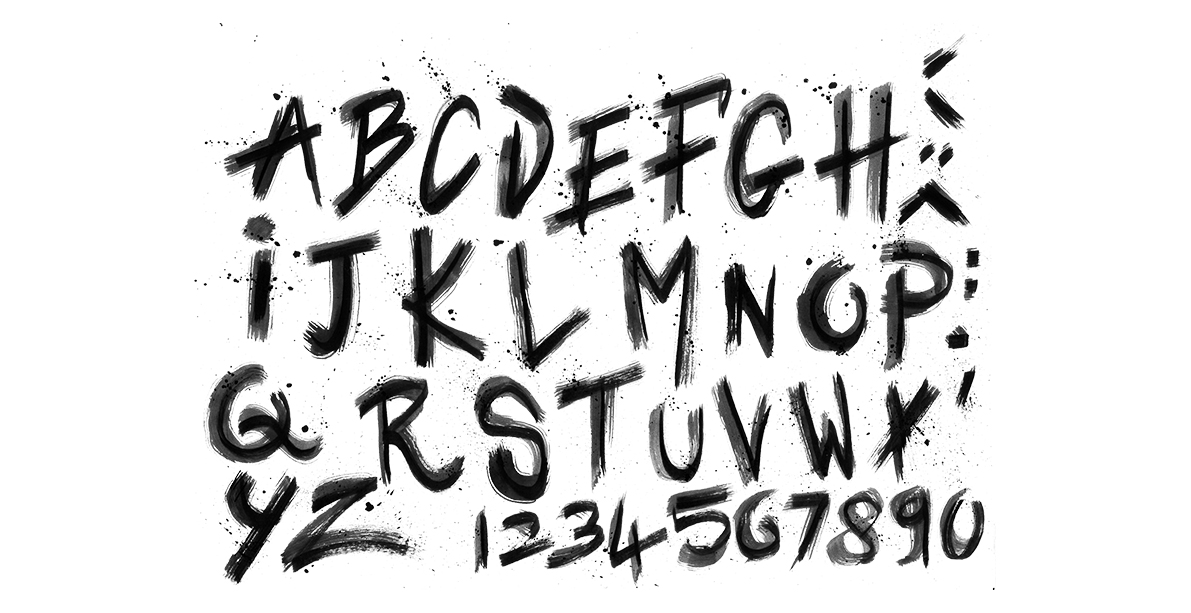 ABCDEFGH
iJKLMNOP
QRSTUVWX
YZ 1234567890